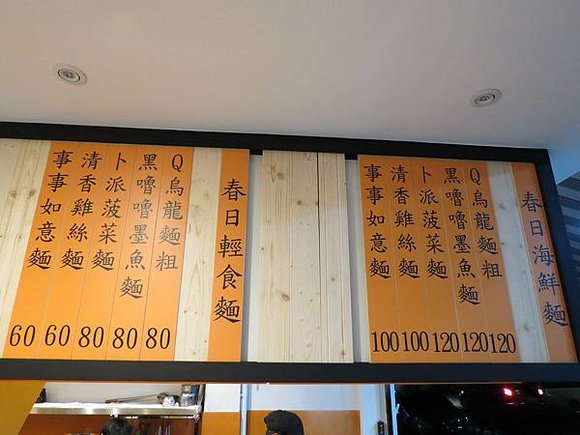 春日海鮮麵
Q烏龍麵粗 120
黑嚕嚕墨魚麵 120
卜派菠菜麵 120
清香雞絲麵 100
事事如意麵 100
春日輕食麵
Q烏龍麵粗 80
黑嚕嚕墨魚麵 80
卜派菠菜麵 80
清香雞絲麵 60
事事如意麵 60